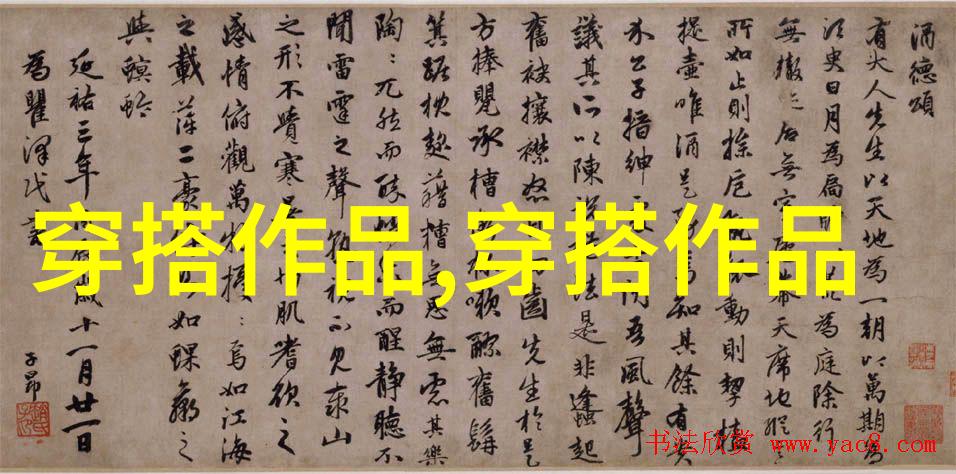 酒德頌
有大人先生以天地為一朝以萬期為
須臾日月為扃牖
為庭除行
無轍迹居無室廬幕天席地縱意
所如止則操卮執觚動則挈榼
提壺唯酒是務焉知其餘有貴
介公子搢紳處士聞吾風聲
議其所以陳說禮法是非蠭起
奮袂攘襟怒目切齒先生於是
方捧甖承槽銜杯漱醪奮髯
箕踞枕麹藉糟無思無慮其樂
陶：兀然而醉恍爾而醒靜聽不
聞雷霆之聲熟視不見泰山
之形不覺寒暑之切肌嗜欲之
感情俯觀萬物擾：焉如江海
之載萍二豪侍側焉如蜾蠃之
與螟蛉
延祐三年
歲十一月廿一日
為瞿澤民書
子昂
穿搭作品,穿搭作品
书法欣赏 www.yac8.com